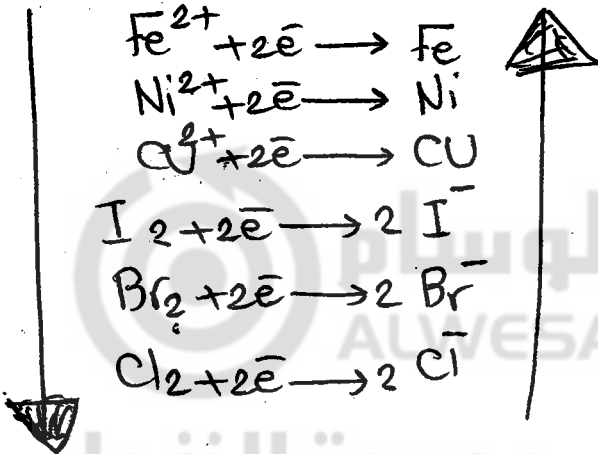 Fe²⁺ + 2e̅ → Fe
Ni²⁺ + 2e̅ → Ni
Cu²⁺ + 2e̅ → CU
I₂ + 2e̅ → 2 I⁻
Br₂ + 2e̅ → 2 Br⁻
Cl₂ + 2e̅ → 2 Cl⁻
ALWESA